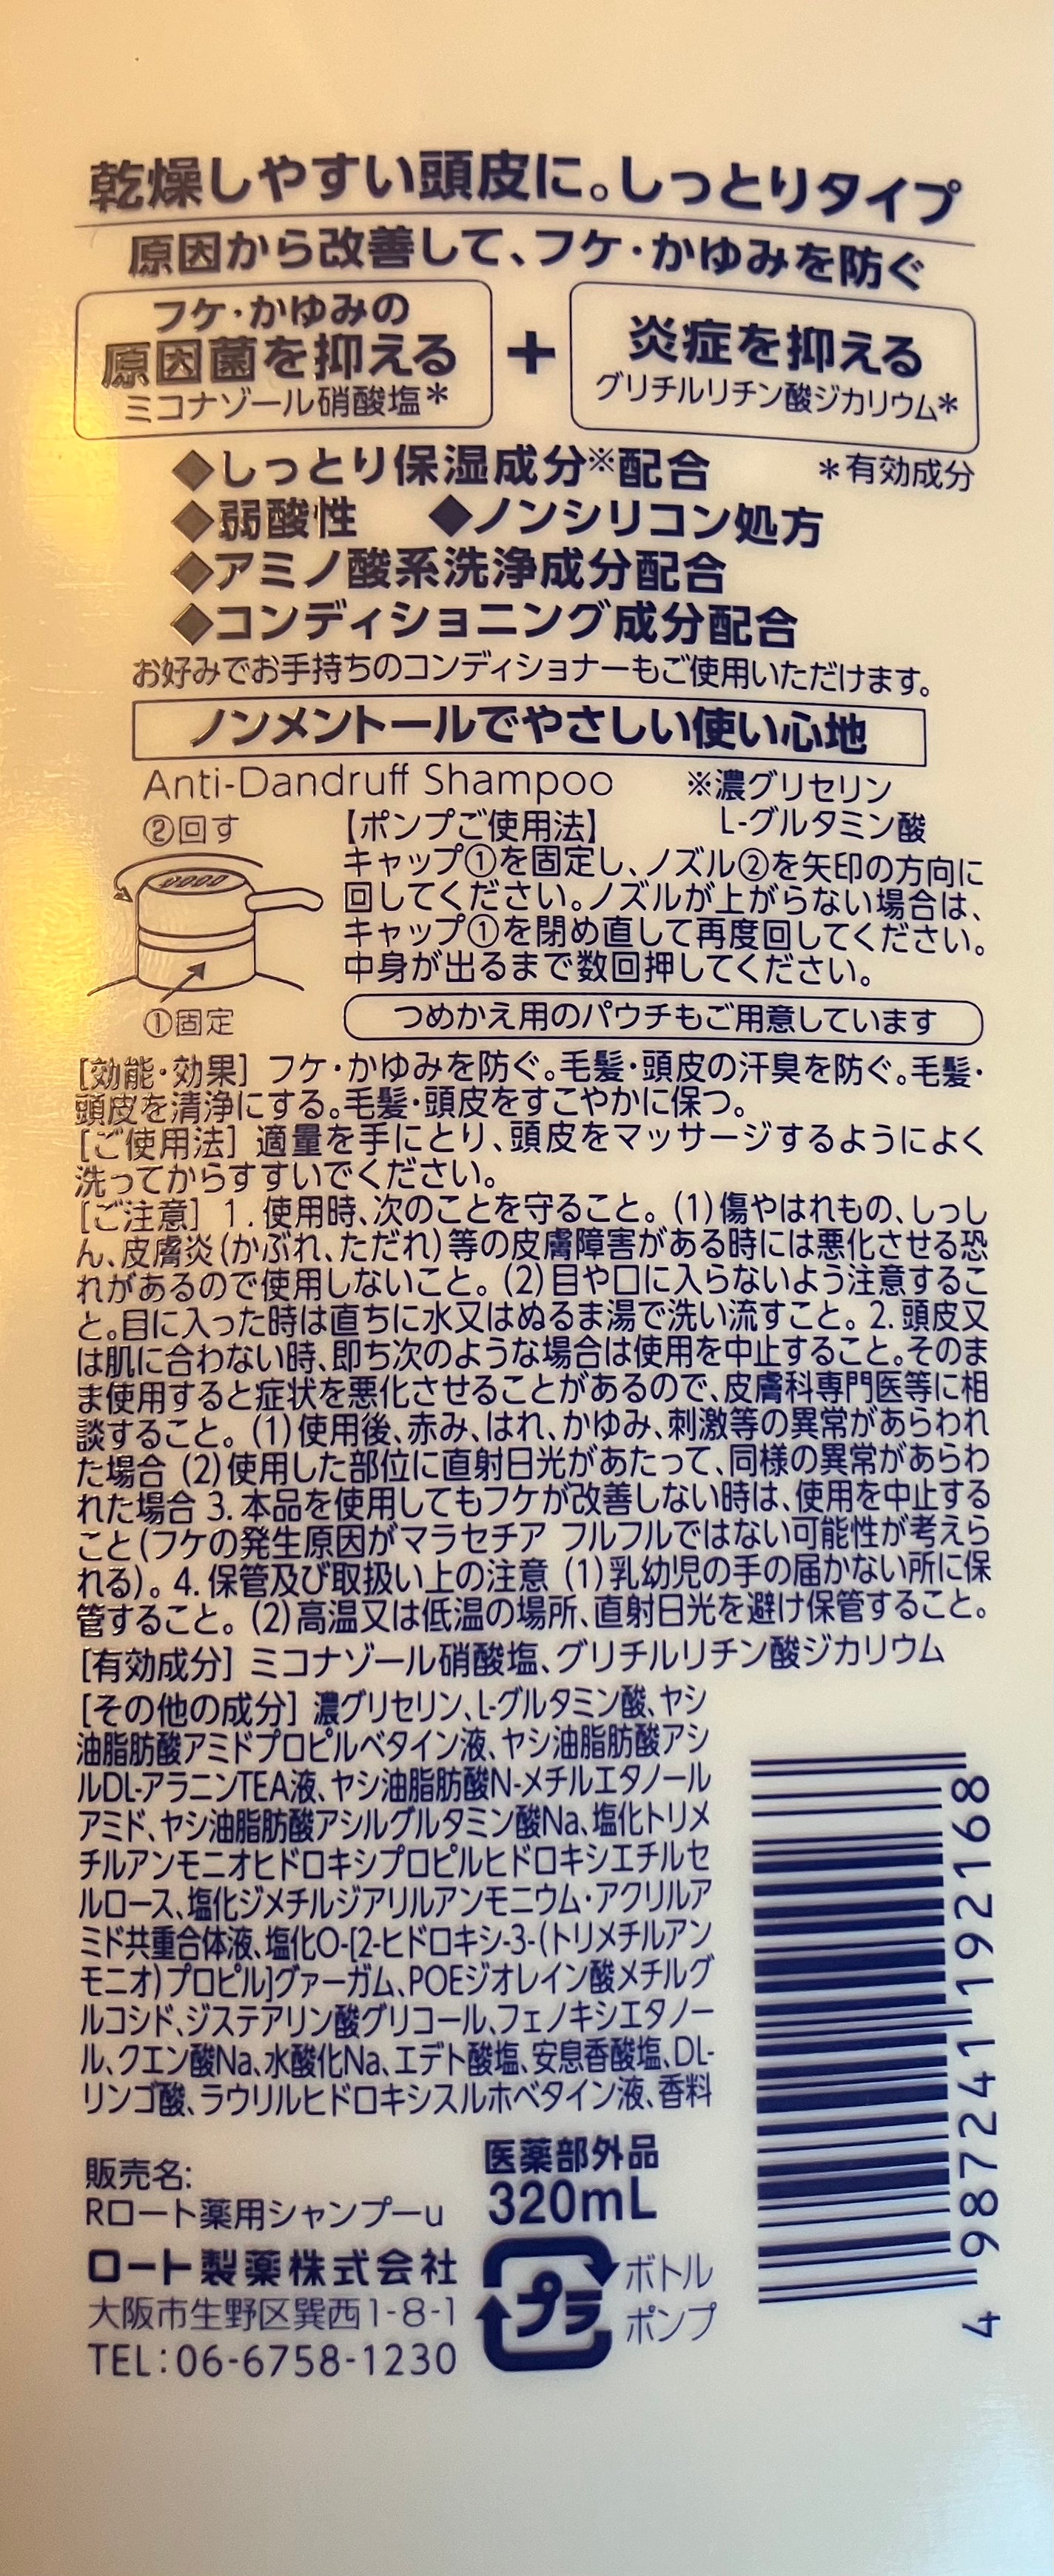 乾燥しやすい頭皮に。しっとりタイプ
原因から改善して、フケ・かゆみを防ぐ
フケ・かゆみの
原因菌を抑える
ミコナゾール硝酸塩＊
＋
炎症を抑える
グリチルリチン酸ジカリウム＊
◆しっとり保湿成分※配合
＊有効成分
◆弱酸性 ◆ノンシリコン処方
◆アミノ酸系洗浄成分配合
◆コンディショニング成分配合
お好みでお手持ちのコンディショナーもご使用いただけます。
ノンメントールでやさしい使い心地
Anti-Dandruff Shampoo
※濃グリセリン
L-グルタミン酸
②回す
①固定
【ポンプご使用法】
キャップ①を固定し、ノズル②を矢印の方向に
回してください。ノズルが上がらない場合は、
キャップ①を閉め直して再度回してください。
中身が出るまで数回押してください。
つめかえ用のパウチもご用意しています
［効能・効果］フケ・かゆみを防ぐ。毛髪・頭皮の汗臭を防ぐ。毛髪・
頭皮を清浄にする。毛髪・頭皮をすこやかに保つ。
［ご使用法］適量を手にとり、頭皮をマッサージするようによく
洗ってからすすいでください。
［ご注意］1.使用時、次のことを守ること。(1)傷やはれもの、しっし
ん、皮膚炎(かぶれ、ただれ)等の皮膚障害がある時には悪化させる恐
れがあるので使用しないこと。(2)目や口に入らないよう注意するこ
と。目に入った時は直ちに水又はぬるま湯で洗い流すこと。2.頭皮又
は肌に合わない時、即ち次のような場合は使用を中止すること。そのま
ま使用すると症状を悪化させることがあるので、皮膚科専門医等に相
談すること。(1)使用後、赤み、はれ、かゆみ、刺激等の異常があらわれ
た場合 (2)使用した部位に直射日光があたって、同様の異常があらわ
れた場合 3.本品を使用してもフケが改善しない時は、使用を中止する
こと(フケの発生原因がマラセチア フルフルではない可能性が考えら
れる)。4.保管及び取扱い上の注意 (1)乳幼児の手の届かない所に保
管すること。(2)高温又は低温の場所、直射日光を避け保管すること。
［有効成分］ミコナゾール硝酸塩、グリチルリチン酸ジカリウム
［その他の成分］濃グリセリン、L-グルタミン酸、ヤシ
油脂肪酸アミドプロピルベタイン液、ヤシ油脂肪酸アシ
ルDL-アラニンTEA液、ヤシ油脂肪酸N-メチルエタノール
アミド、ヤシ油脂肪酸アシルグルタミン酸Na、塩化トリメ
チルアンモニオヒドロキシプロピルヒドロキシエチルセ
ルロース、塩化ジメチルジアリルアンモニウム・アクリルア
ミド共重合体液、塩化O-[2-ヒドロキシ-3-(トリメチルアン
モニオ)プロピル]グァーガム、POEジオレイン酸メチルグ
ルコシド、ジステアリン酸グリコール、フェノキシエタノー
ル、クエン酸Na、水酸化Na、エデト酸塩、安息香酸塩、DL-
リンゴ酸、ラウリルヒドロキシスルホベタイン液、香料
4 987241 192168
販売名:
Rロート薬用シャンプーu
医薬部外品
320mL
ロート製薬株式会社
大阪市生野区巽西1-8-1
TEL:06-6758-1230
プラ
ボトル
ポンプ